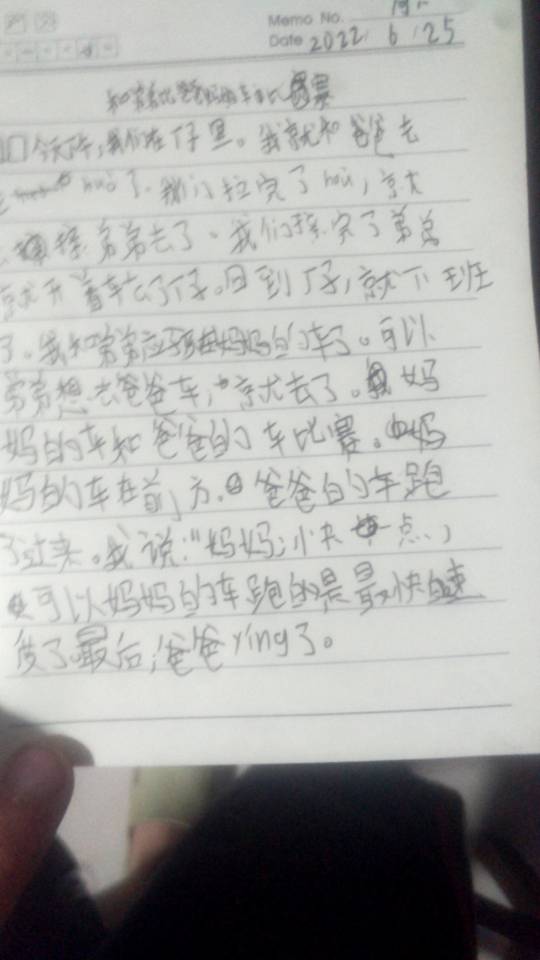 Memo No.
Date 2022 6 25
今天下午,我们在仔里。我就和爸爸去
huò了。我们拉完了huò,京尤
接弟弟去了。我们接完了弟弟
京尤开着车去了仔。回到仔,就下班
了。我和弟弟应该在妈妈的车了。可以
弟弟想去爸爸车,京尤去了。妈
妈的车和爸爸的车比赛。妈
妈的车在前方。爸爸的车跑
了过来。我说:“妈妈,小快一点,
可以妈妈的车跑的是最快的速
度了。最后,爸爸ying了。